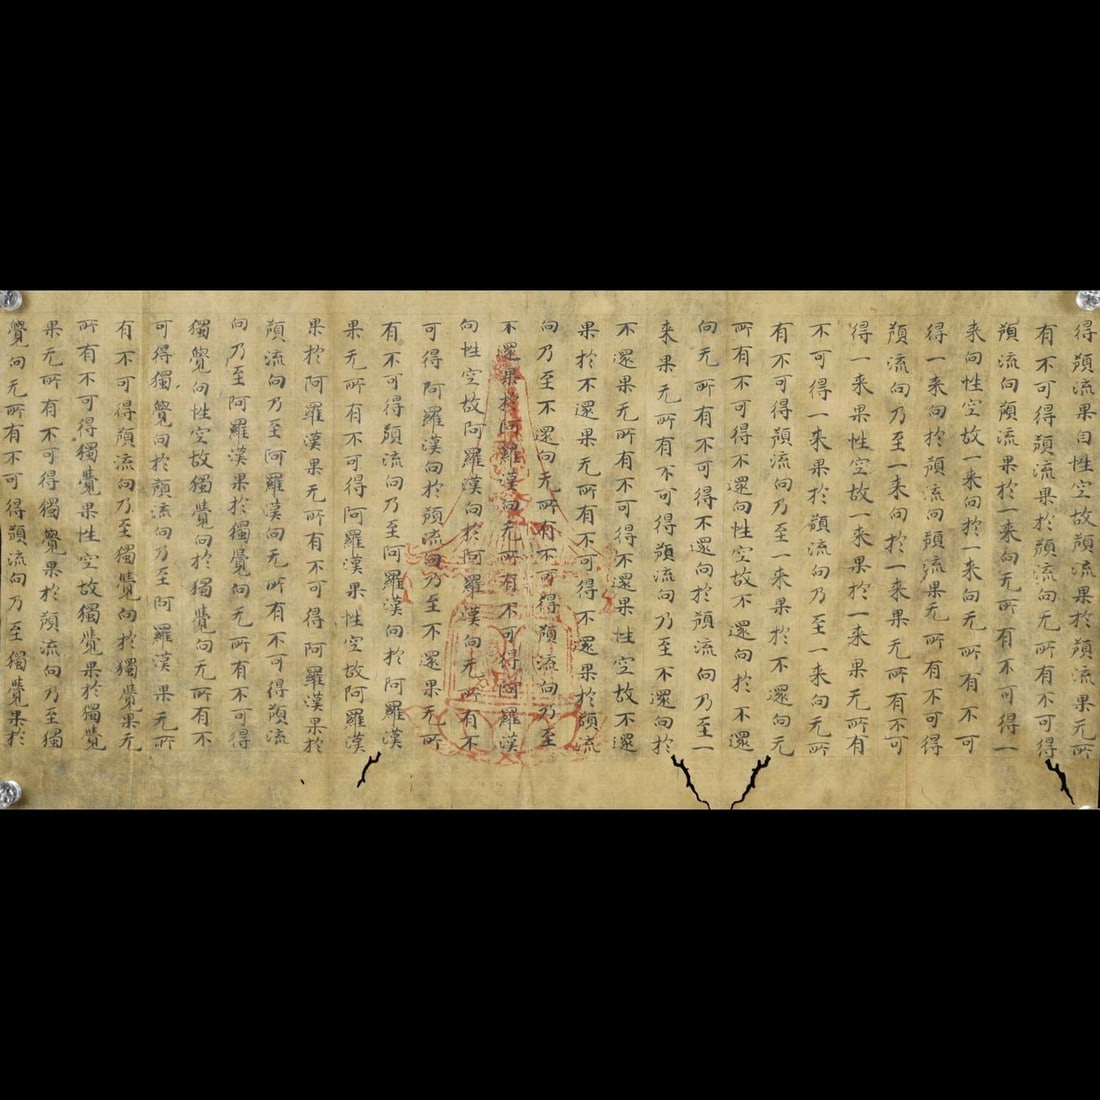 得預流果自性空故預流果於預流果无所
有不可得預流果於預流向无所有不可得
預流向預流果於一来向无所有不可得一
来向性空故一来向於一来向无所有不可
得一来向於預流向預流果无所有不可得
預流向乃至一来向於一来果无所有不可
得一来果性空故一来果於一来果无所有
不可得一来果於預流向乃至一来向无所
有不可得預流向乃至一来果於不還向无
所有不可得不還向性空故不還向於不還
向无所有不可得不還向於預流向乃至一
来果无所有不可得預流向乃至不還向於
不還果无所有不可得不還果性空故不還
果於不還果无所有不可得不還果於預流
向乃至不還向无所有不可得預流向乃至
不還果於阿羅漢向无所有不可得阿羅漢
向性空故阿羅漢向於阿羅漢向无所有不
可得阿羅漢向於預流向乃至不還果无所
有不可得預流向乃至阿羅漢向於阿羅漢
果无所有不可得阿羅漢果性空故阿羅漢
果於阿羅漢果无所有不可得阿羅漢果於
預流向乃至阿羅漢向无所有不可得預流
向乃至阿羅漢果於獨覺向无所有不可得
獨覺向性空故獨覺向於獨覺向无所有不
可得獨覺向於預流向乃至阿羅漢果无所
有不可得預流向乃至獨覺向於獨覺果无
所有不可得獨覺果性空故獨覺果於獨覺
果无所有不可得獨覺果於預流向乃至獨
覺向无所有不可得預流向乃至獨覺果於